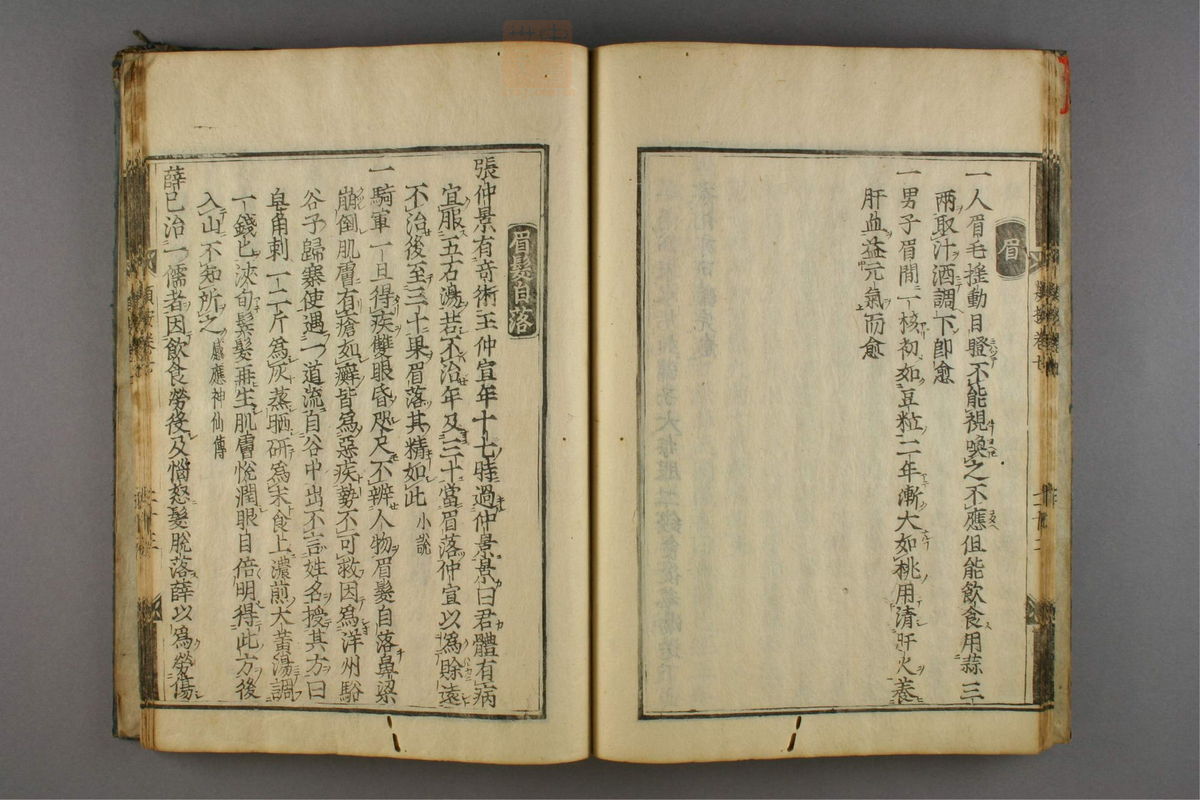 眉
一人眉毛揺動目瞪不能視喚之不應但能飲食用蒜三
兩取汁酒調下即愈
一男子眉間一核初如豆粒二年漸大如桃用清肝火養
肝血益元氣而愈
眉髮自落
張仲景有奇術王仲宣年十七時過仲景景曰君體有病
宜服五石湯若不治年及三十當眉落仲宣以為賖遠
不治後至三十果眉落其精如此 小說
一騎軍一旦得疾雙眼昏咫尺不辨人物眉髮自落鼻梁
崩倒肌膚有瘡如癬皆為惡疾勢不可救因為洋州駱
谷子歸寨使遇一道流自谷中出不言姓名授其方曰
皂角刺一二斤為灰蒸晒研為末食上濃煎大黃湯調
一錢匕浹旬鬚髮再生肌膚悅潤眼目倍明得此方後
入山不知所之 感應神仙傳
薛已治一儒者因飲食勞役及惱怒髮脫落薛以為勞傷